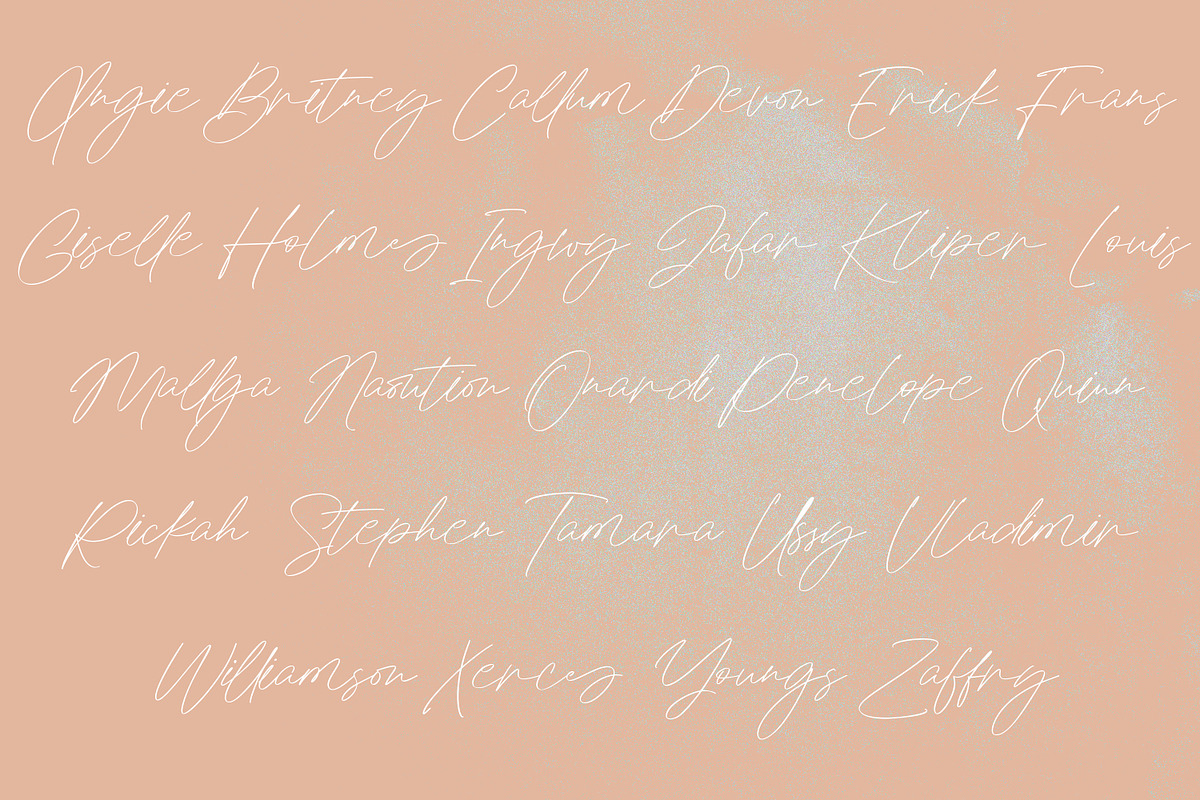 Angie Britney Callum Devon Erick Frans
Giselle Holmes Ingwy Jafar Kliper Louis
Mallga Nasution Onardi Penelope Quinn
Rickah Stephen Tamara Ussy Vladimir
Williamson Xerces Youngs Zaffry